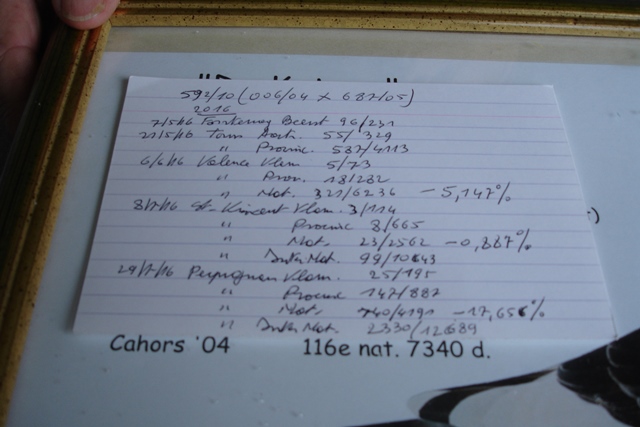 592/10 (006/04 x 687/05)
2016
7/5/16 Fontenay Beerst 96/231
21/5/16 Tours Nat. 55/329
" Provinc. 587/4113
6/6/16 Valence Vlam 5/73
" Prov. 18/282
" Nat. 321/6236 -5,147%
8/7/16 St-Vincent Vlam. 3/114
" Provinc 8/665
" Nat. 23/2562 -0,887%
" Int Nat. 99/10643
29/7/16 Perpignan Vlam. 25/195
" Provinc 147/887
" Nat. 740/4191 -17,656%
" Int Nat. 2330/12689
Cahors '04 116e nat. 7340 d.